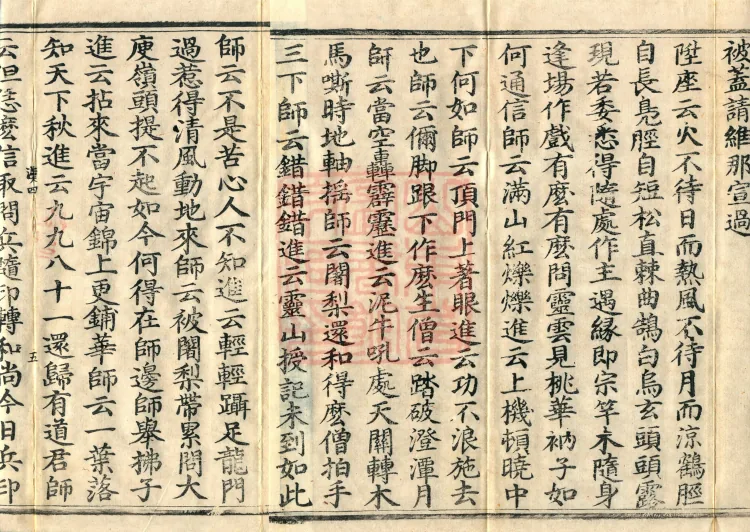 被蓋請維那宣過
陞座云火不待日而熱風不待月而涼鶴脛
自長鳧脛自短松直棘曲鵠白烏玄頭頭露
現若委悉得隨處作主遇緣即宗竿木隨身
逢場作戲有麼有麼問靈雲見桃華衲子如
何通信師云滿山紅爍爍進云上機頓曉中
下何如師云頂門上著眼進云功不浪施去
也師云儞脚跟下作麼生僧云踏破澄潭月
師云當空轟霹靂進云泥牛吼處天關轉木
馬嘶時地軸搖師云闍梨還和得麼僧拍手
三下師云錯錯錯進云靈山授記未到如此
師云不是苦心人不知進云輕輕躡足龍門
過惹得清風動地來師云被闍梨帶累問大
庾嶺頭提不起如今何得在師邊師舉拂子
進云拈來當宇宙錦上更鋪華師云一葉落
知天下秋進云九九八十一還歸有道君師
云但恁麼信取問兵隨印轉和尚今日兵印
五